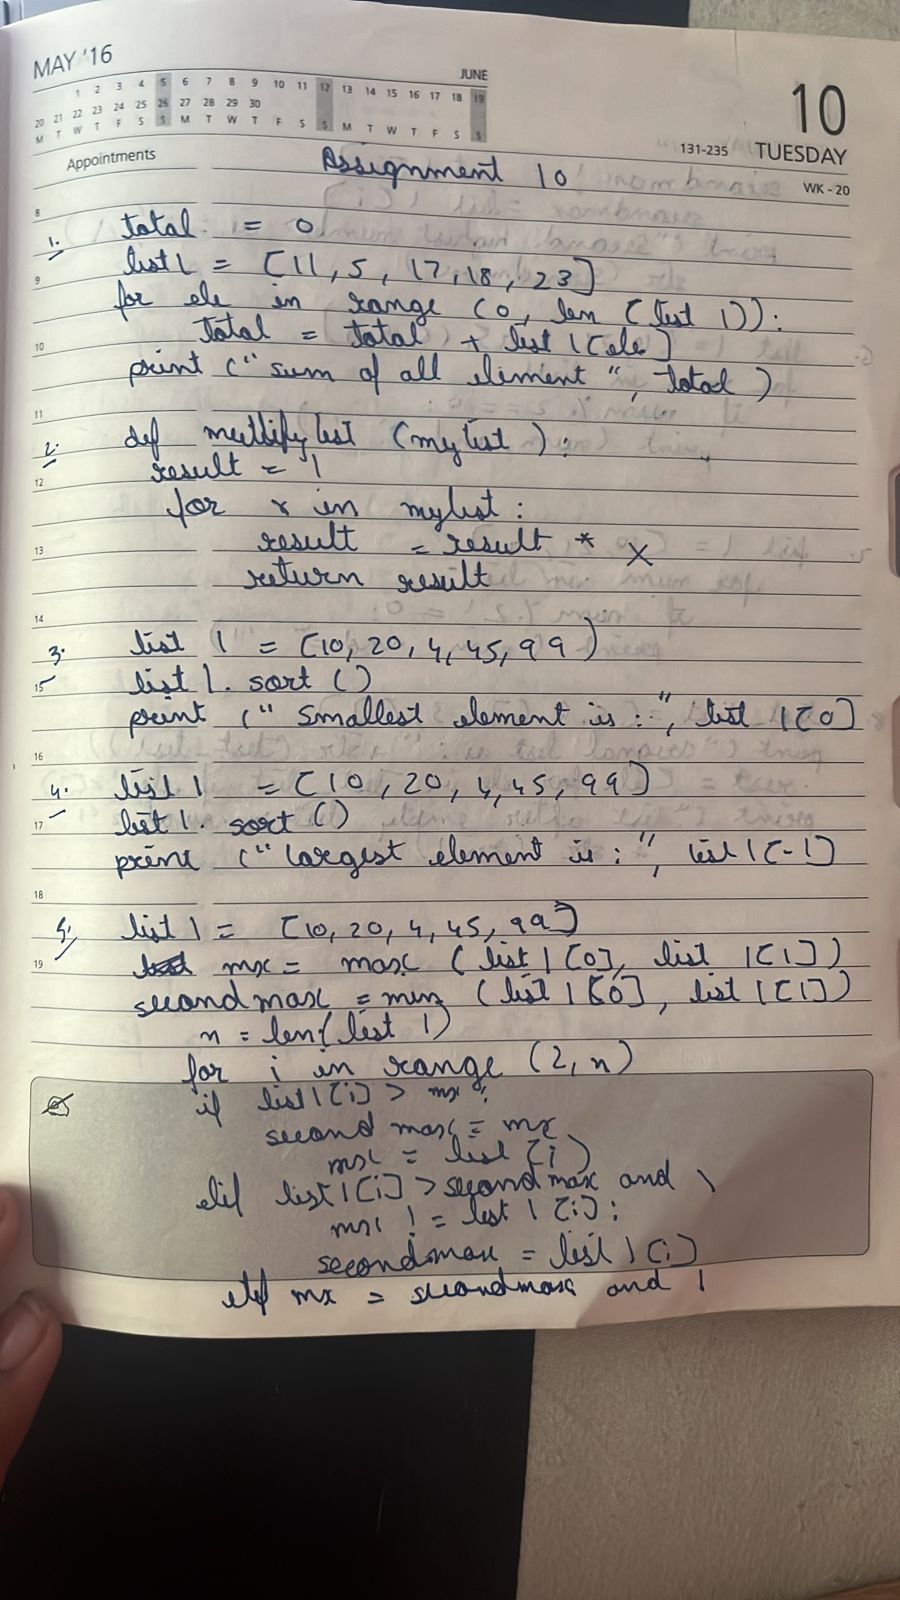 MAY '16
JUNE
1 2 3 4 5 6 7 8 9 10 11 12 13 14 15 16 17 18 19
20 21 22 23 24 25 26 27 28 29 30
M T W T F S S M T W T F S S M T W T F S S
10
131-235 TUESDAY
WK - 20
Appointments
Assignment 10
8
1. total = 0
9 list 1 = [11, 5, 17, 18, 23]
for ele in range (0, len (list 1)):
10 total = total + list 1 [ele]
print (" sum of all element ", total )
11
2. def multiply list (my list ):
12 result = 1
for x in mylist :
13 result = result * x
return result
14
3. list 1 = [10, 20, 4, 45, 99)
15 list 1. sort ()
print (" Smallest element is : ", list 1 [0]
16
4. list 1 = [10, 20, 4, 45, 99]
17 list 1. sort ()
print (" largest element is : ", list 1 [-1]
18
5. list 1 = [10, 20, 4, 45, 99]
19 mx = max (list 1 [0], list 1[1])
secondmax = min (list 1 [0], list 1[1])
n = len( list 1)
for i in range (2, n)
if list 1 [i] > mx :
second max = mx
mx = list [i)
elif list 1 [i] > secondmax and \
mx != list 1 [i]:
secondmax = list 1 [i]
elif mx = secondmax and \